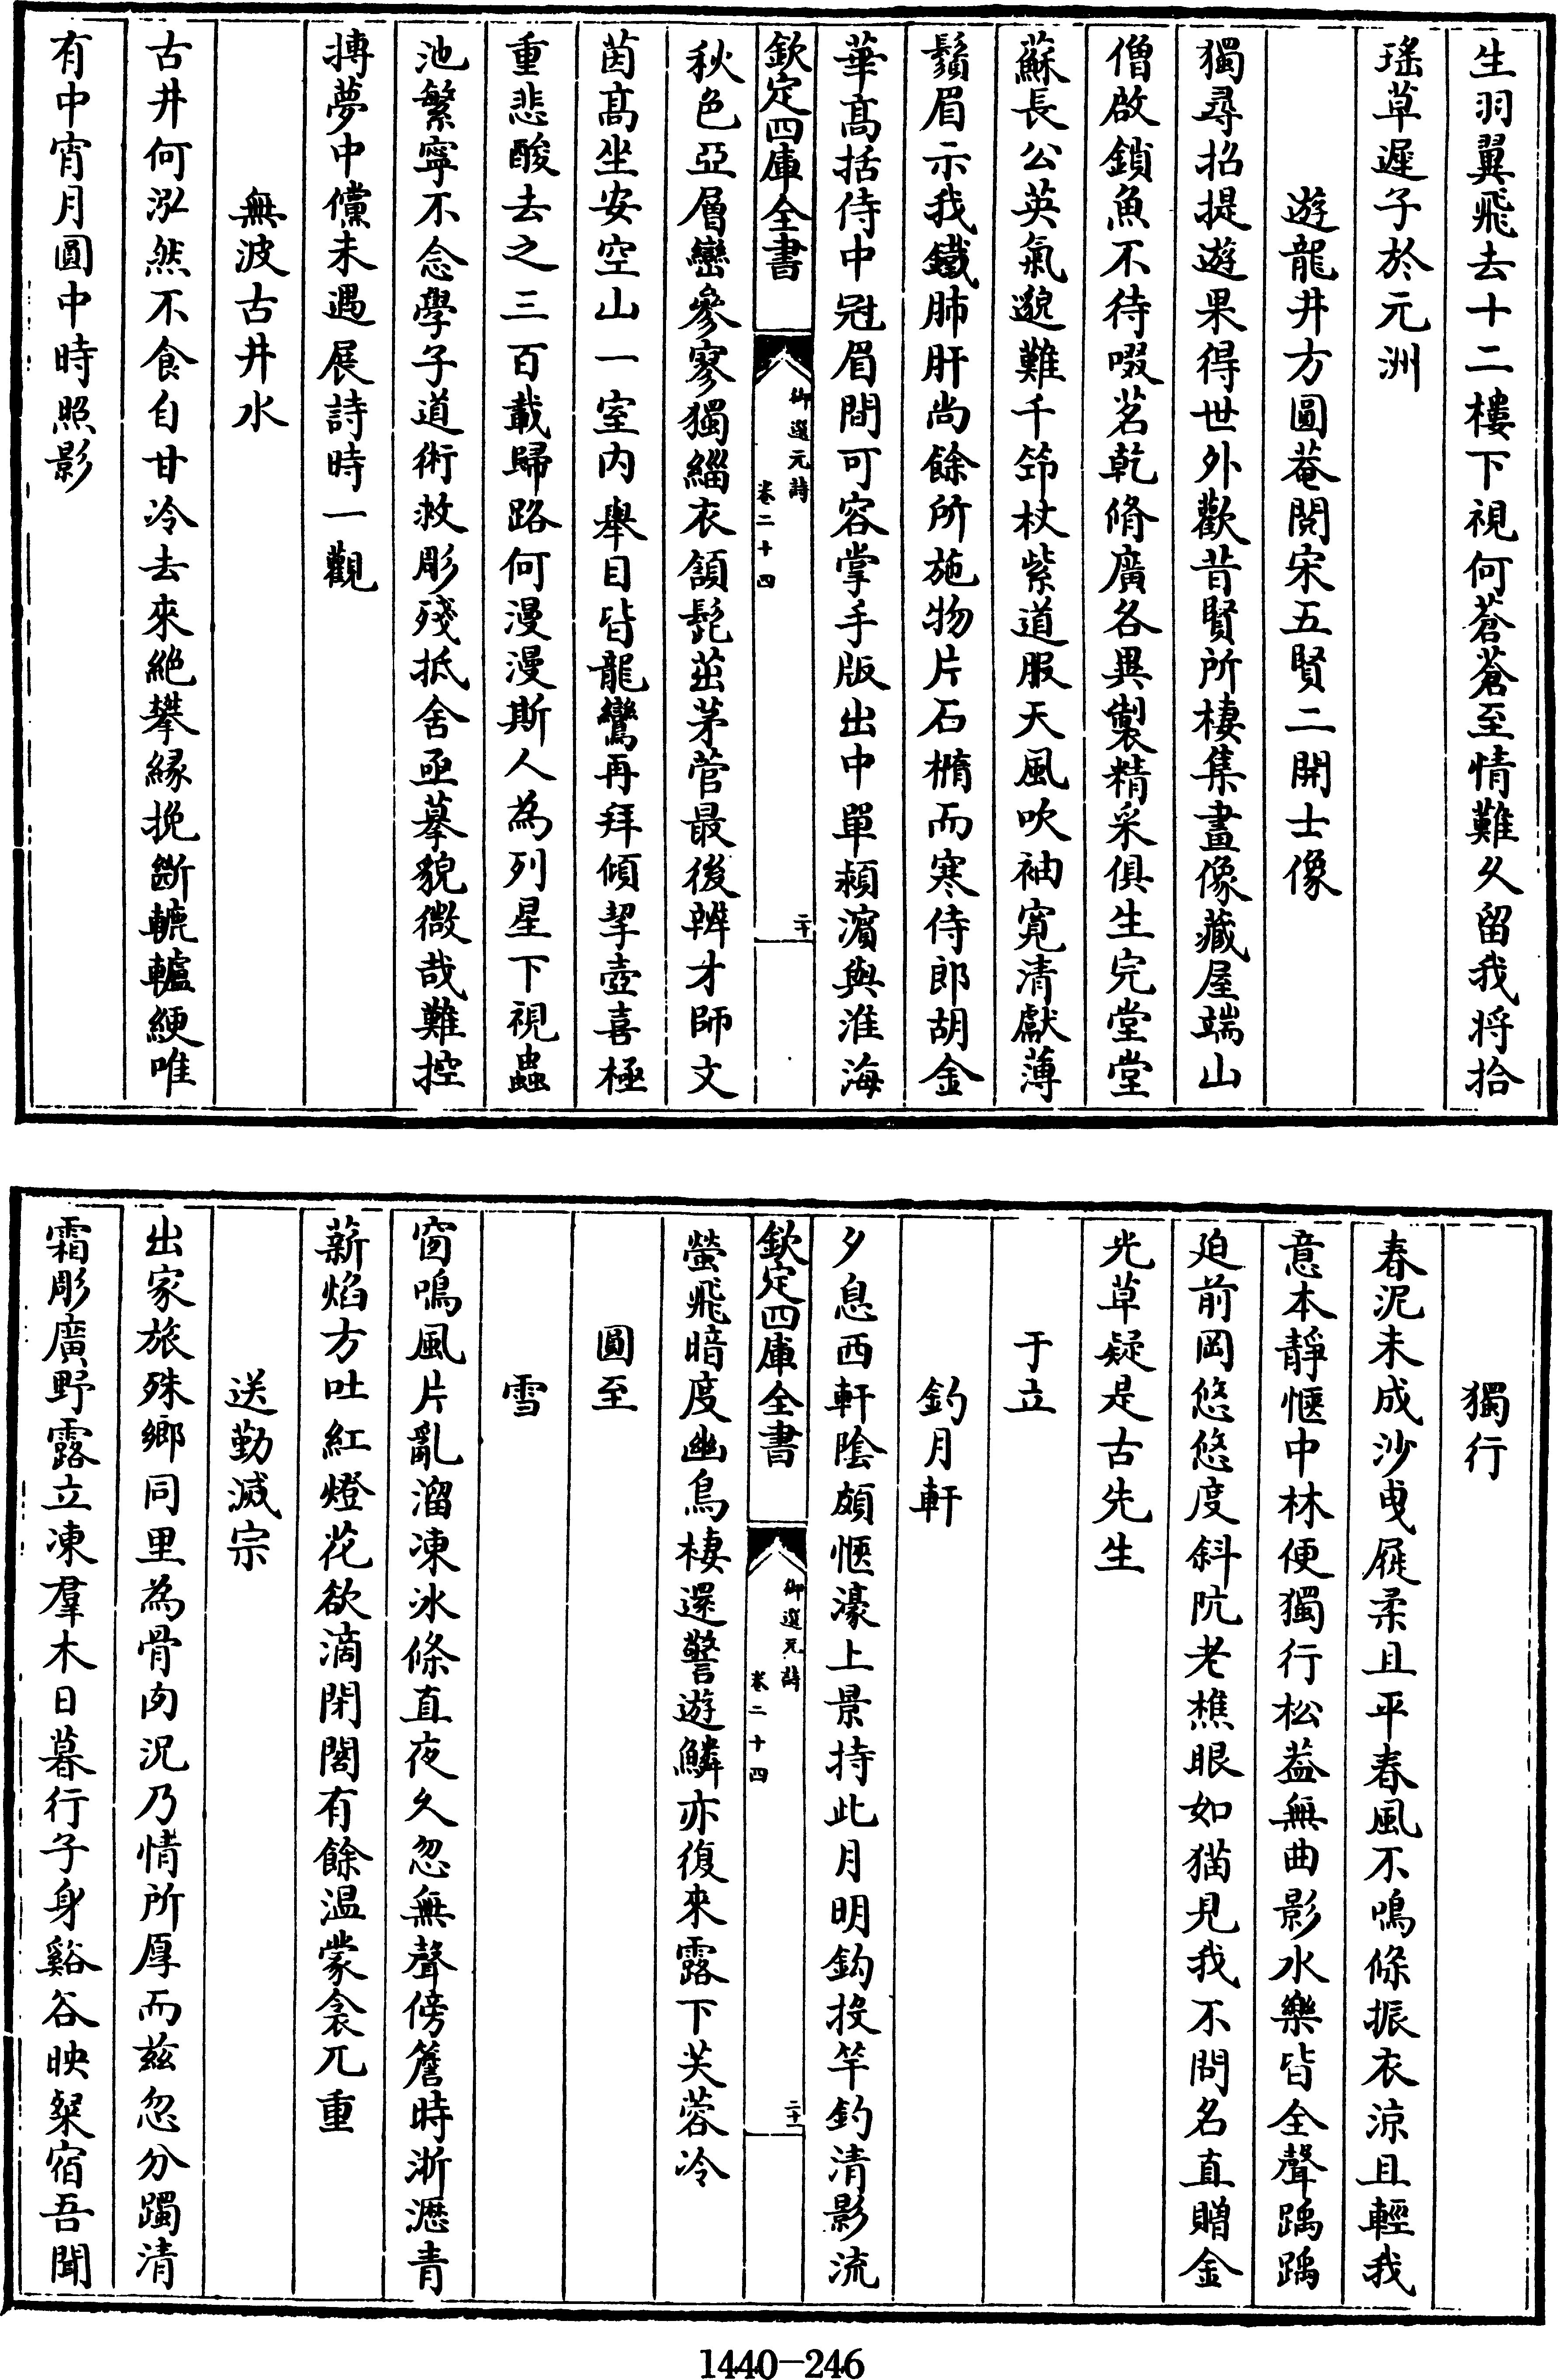 生羽翼飛去十二樓下視何蒼蒼至情難久留我將拾
瑤草遲子於元洲
遊龍井方圓菴閱宋五賢二開士像
獨尋招提遊果得世外歡昔賢所棲集畫像藏屋端山
僧啟鎖魚不待啜茗乾脩廣各異製精采俱生完堂堂
蘇長公英氣邈難干筇杖紫道服天風吹袖寬清獻薄
鬚眉示我鐵肺肝尚餘所施物片石橢而寒侍郎胡金
華高括侍中冠眉間可容掌手版出中單潁濵與淮海
欽定四庫全書
御選元詩
卷二十四
二十
秋色亞層巒參寥獨緇衣頷髭茁茅菅最後辨才師文
茵高坐安空山一室內舉目皆龍鸞再拜傾挈壺喜極
重悲酸去之三百載歸路何漫漫斯人為列星下視蟲
池繁寧不念學子道術救彫殘抵舍亟摹貌微哉難控
摶夢中儻未遇展詩時一觀
無波古井水
古井何泓然不食自甘冷去來絕攀緣挽斷轆轤綆唯
有中宵月圓中時照影
獨行
春泥未成沙曳屐柔且平春風不鳴條振衣涼且輕我
意本靜愜中林便獨行松葢無曲影水樂皆全聲踽踽
廹前岡悠悠度斜阬老樵眼如猫見我不問名直贈金
光草疑是古先生
于立
釣月軒
夕息西軒隂頗愜濠上景持此月明鈎投竿釣清影流
欽定四庫全書
御選元詩
卷二十四
二十一
螢飛暗度幽鳥棲還警遊鱗亦復來露下芙蓉冷
圓至
雪
窗鳴風片亂溜凍冰條直夜久忽無聲傍簷時淅瀝青
薪焰方吐紅燈花欲滴閉閣有餘温蒙衾兀重
送勤滅宗
出家旅殊鄉同里為骨肉況乃情所厚而兹忽分躅清
霜彫廣野露立凍羣木日暮行子身谿谷映粲宿吾聞
1440-246